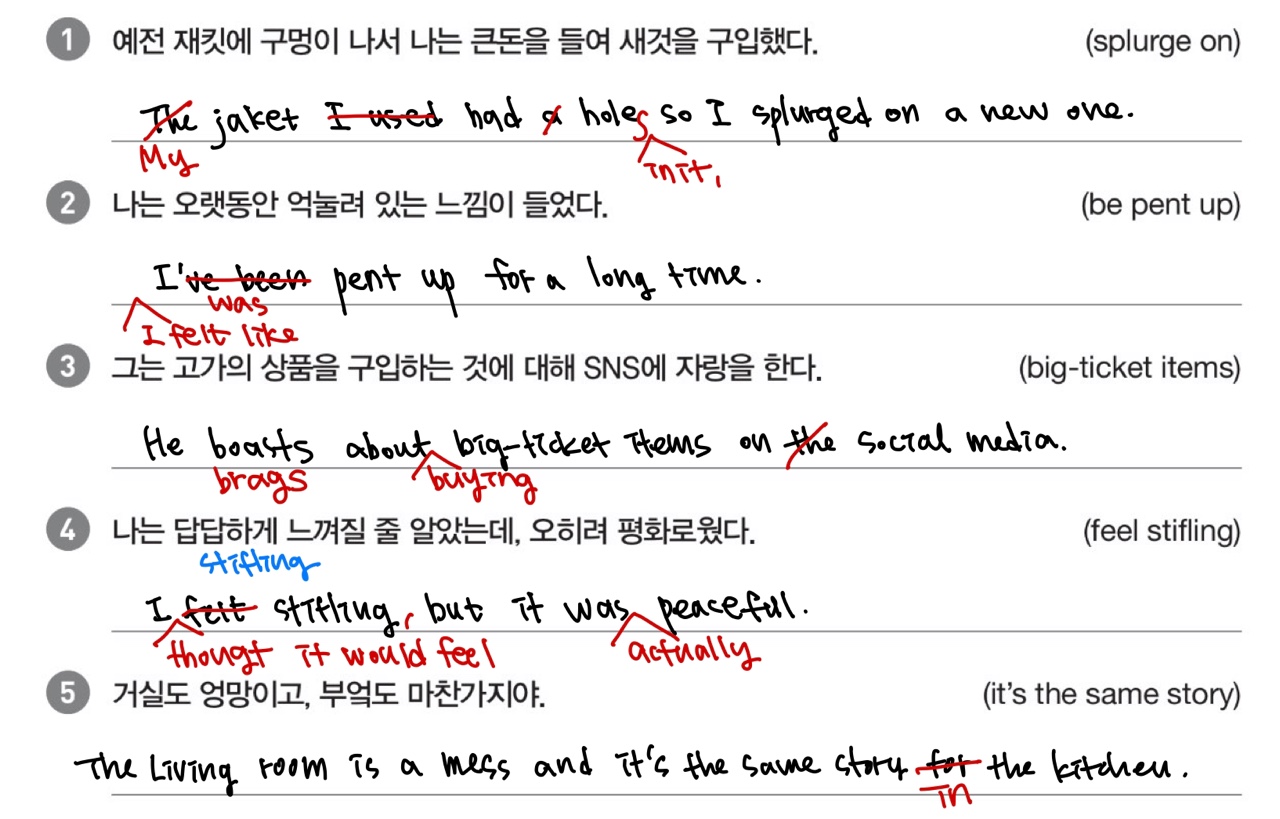 1 예전 재킷에 구멍이 나서 나는 큰돈을 들여 새것을 구입했다. (splurge on)
The jaket I used had a holes so I splurged on a new one.
My in it,
2 나는 오랫동안 억눌려 있는 느낌이 들었다. (be pent up)
I've been pent up for a long time.
was
I felt like
3 그는 고가의 상품을 구입하는 것에 대해 SNS에 자랑을 한다. (big-ticket items)
He boasts about big-ticket items on the social media.
brags buying
4 나는 답답하게 느껴질 줄 알았는데, 오히려 평화로웠다. (feel stifling)
stifling
I felt stifling, but it was peaceful.
thougt it would feel actually
5 거실도 엉망이고, 부엌도 마찬가지야. (it's the same story)
The Living room is a mess and it's the same story for the kitchen.
in